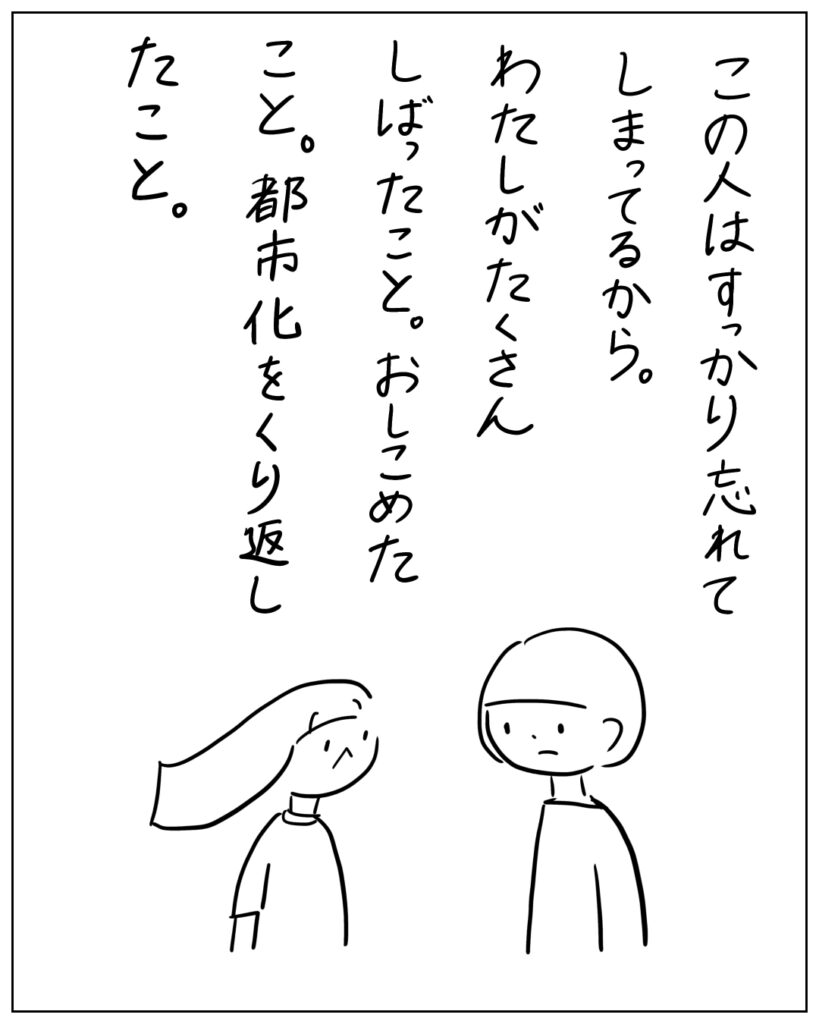 この人はすっかり忘れて
しまってるから。
わたしがたくさん
しばったこと。おしこめた
こと。都市化をくり返し
たこと。